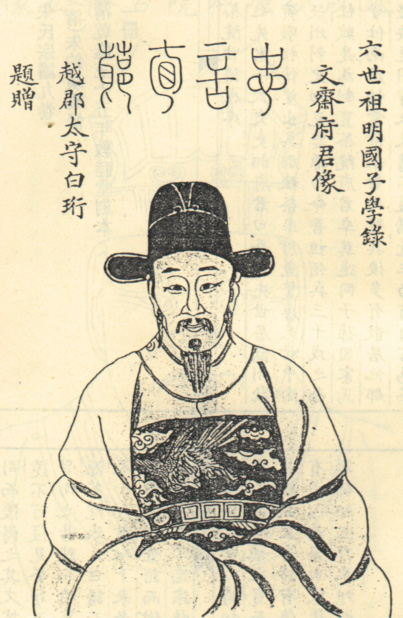 六世祖明國子學錄
文齋府君像
忠言直節
越郡太守白珩
題贈